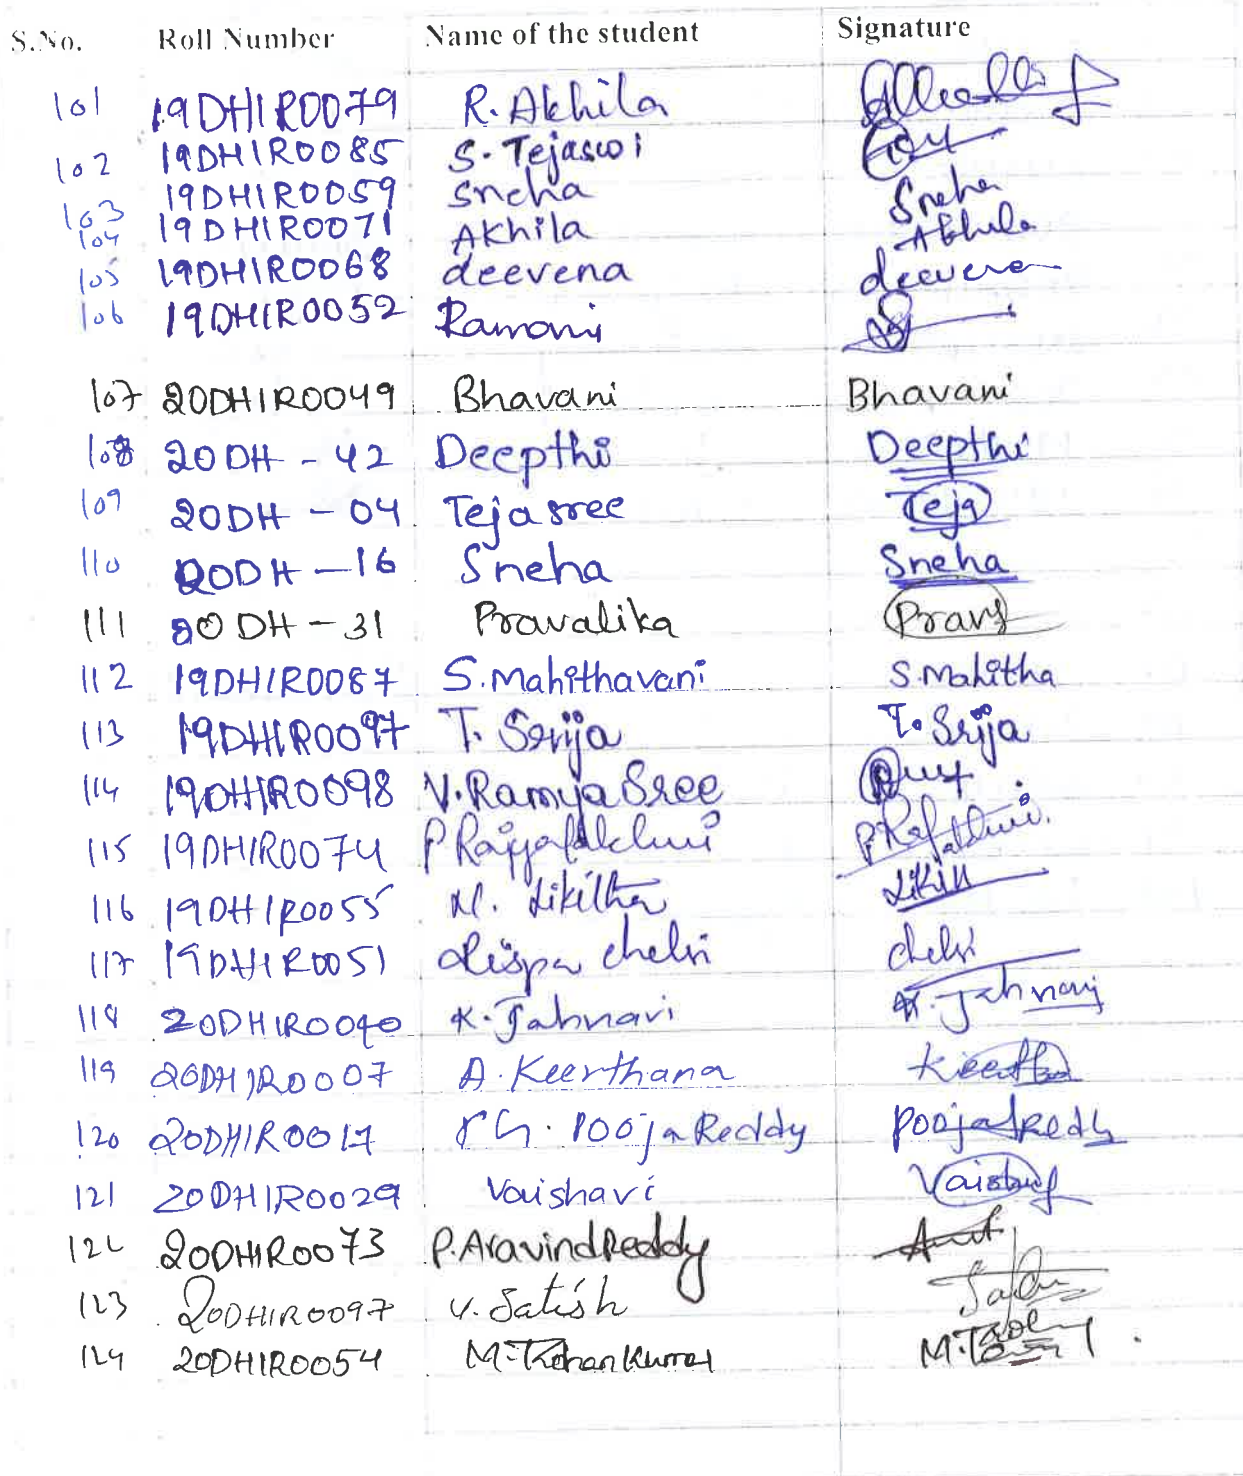 S.No. Roll Number Name of the student Signature
101 19DH1R0079 R. Akhila
102 19DH1R0085 S. Tejaswi
103 19DH1R0059 Sneha Sneha
104 19DH1R0071 Akhila Akhila
105 19DH1R0068 deevena deevena
106 19DH1R0052 Ramani
107 20DH1R0049 Bhavani Bhavani
108 20DH - 42 Deepthi Deepthi
109 20DH - 04 Tejasree Teja
110 20DH - 16 Sneha Sneha
111 20DH - 31 Pravalika Pravs
112 19DH1R0087 S. Mahithavani S. Mahitha
113 19DH1R0097 T. Srija T. Srija
114 19DH1R0098 V. Ramya Sree
115 19DH1R0074 P
116 19DH1R0055 M. Likitha Likith
117 19DH1R0051 chelsi chelsi
118 20DH1R0040 K. Jahnavi K. Jahnavi
119 20DH1R0007 A. Keerthana Keertha
120 20DH1R0017 Ch. Pooja Reddy Pooja Reddy
121 20DH1R0029 Vaishavi
122 20DH1R0073 P. Aravind Reddy
123 20DH1R0097 V. Satish
124 20DH1R0054 M. Kumar